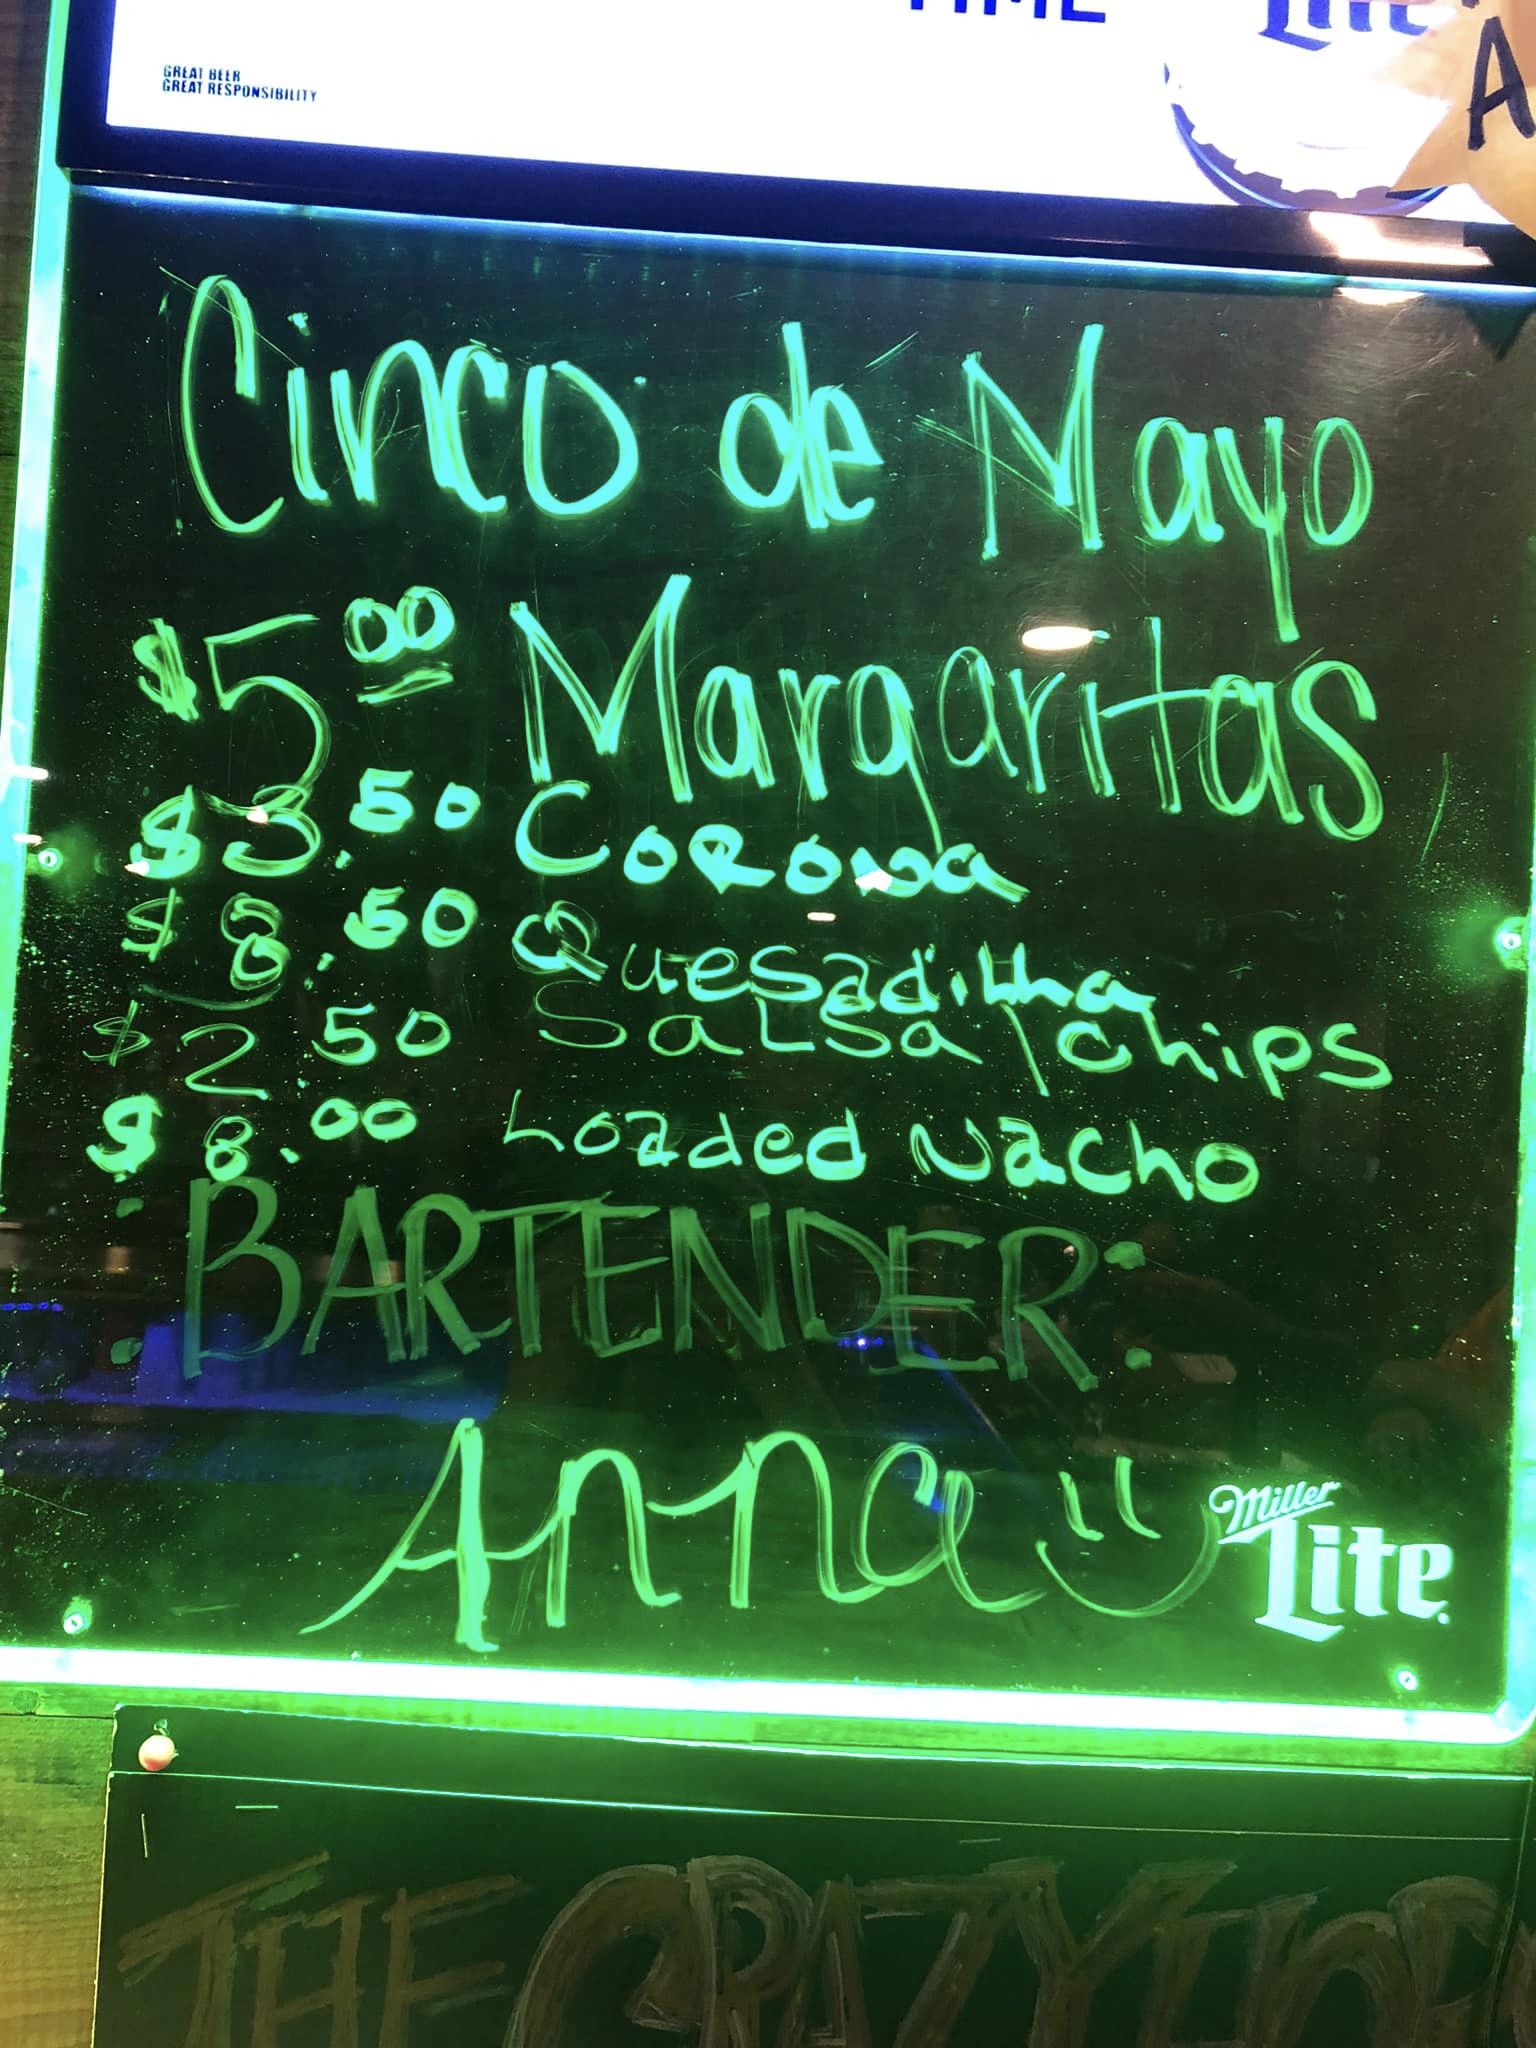 TIME
Lite
A
GREAT BEER
GREAT RESPONSIBILITY
Cinco de Mayo
$5.00 Margaritas
$3.50 Corona
$8.50 Quesadilla
$2.50 Salsa/Chips
$8.00 Loaded Nacho
BARTENDER:
Anna
Miller
Lite
THE CRAZY HORSE